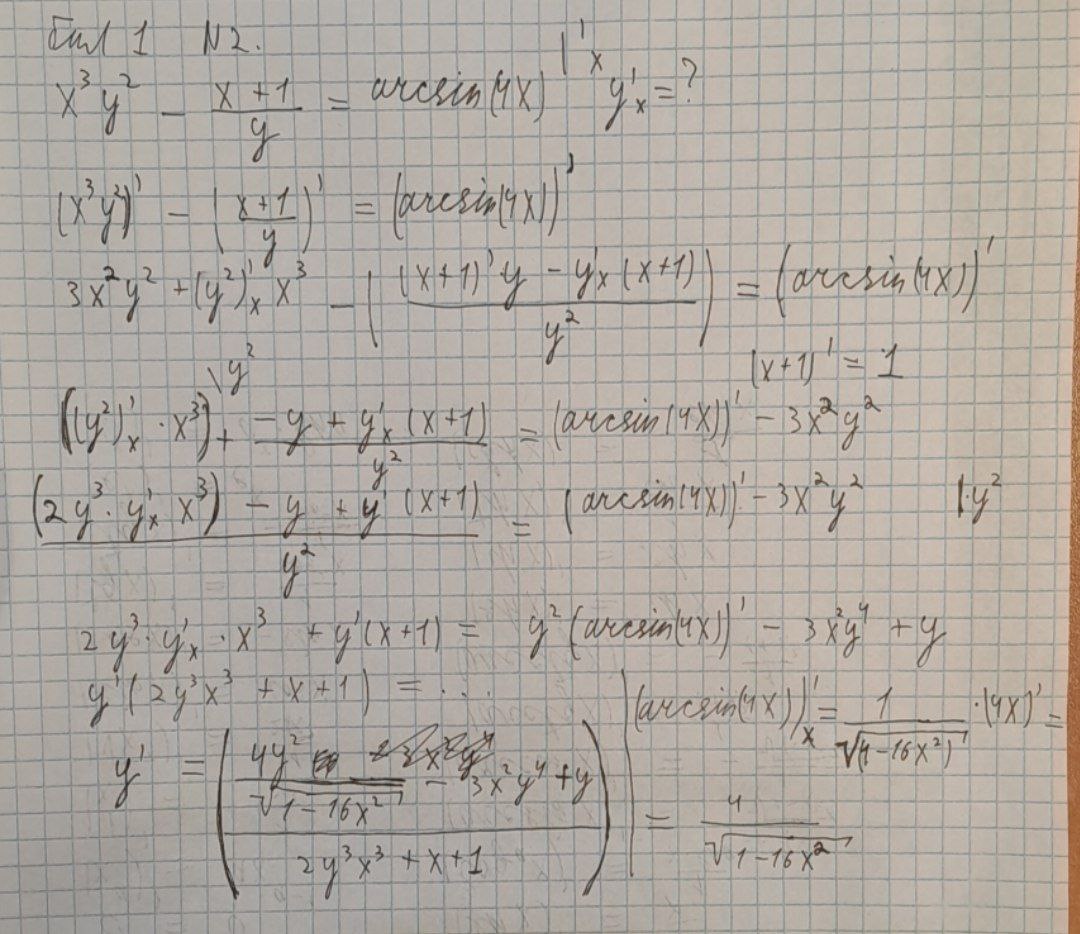 Бил 1 N2.
x³y² - (x+1)/y = arcsin(4x) |'ₓ y'ₓ = ?
(x³y²)' - ((x+1)/y)' = (arcsin(4x))'
3x²y² + (y²)'ₓ x³ - (((x+1)'y - y'ₓ(x+1))/y²) = (arcsin(4x))'
(x+1)' = 1
((y²)'ₓ · x³)\y² + (-y + y'ₓ(x+1))/y² = (arcsin(4x))' - 3x²y²
((2y³ · y'ₓ x³) - y + y'(x+1))/y² = (arcsin(4x))' - 3x²y² |·y²
2y³ · y'ₓ · x³ + y'(x+1) = y²(arcsin(4x))' - 3x²y⁴ + y
y'(2y³x³ + x + 1) = ...
y' = ((4y²/√(1-16x²) - 3x²y⁴ + y)/(2y³x³ + x + 1))
(arcsin(4x))'ₓ = 1/√(1-16x²) · (4x)' =
= 4/√(1-16x²)